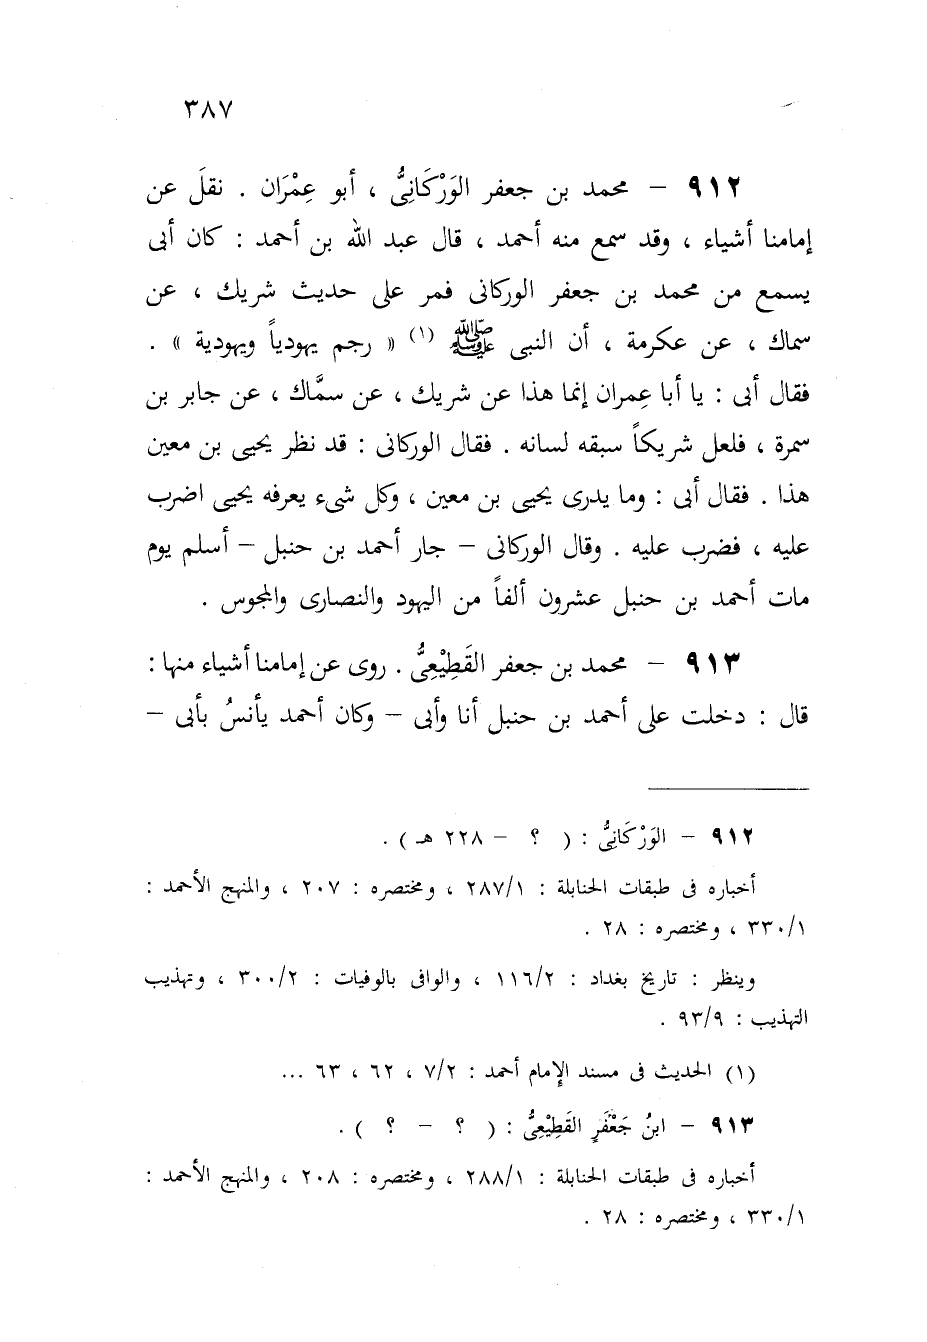 ٣٨٧
٩١٢ – محمد بن جعفر الوَرْكَانِىُّ ، أبو عِمْرَان . نقلَ عن
إمامنا أشياء ، وقد سمع منه أحمد ، قال عبد الله بن أحمد : كان أبى
يسمع من محمد بن جعفر الوركانى فمر على حديث شريك ، عن
سماك ، عن عكرمة ، أن النبى ﷺ (١) « رجم يهودياً ويهودية » .
فقال أبى : يا أبا عِمران إنما هذا عن شريك ، عن سمَّاك ، عن جابر بن
سمرة ، فلعل شريكاً سبقه لسانه . فقال الوركانى : قد نظر يحيى بن معين
هذا . فقال أبى : وما يدرى يحيى بن معين ، وكل شىء يعرفه يحيى اضرب
عليه ، فضرب عليه . وقال الوركانى – جار أحمد بن حنبل – أسلم يوم
مات أحمد بن حنبل عشرون ألفاً من اليهود والنصارى والمجوس .
٩١٣ – محمد بن جعفر القَطِيْعِىُّ . روى عن إمامنا أشياء منها :
قال : دخلت على أحمد بن حنبل أنا وأبى – وكان أحمد يأنسُ بأبى –
٩١٢ – الوَرْكَانِىُّ : ( ؟ – ٢٢٨ هـ ) .
أخباره فى طبقات الحنابلة : ٢٨٧/١ ، ومختصره : ٢٠٧ ، والمنهج الأحمد :
٣٣٠/١ ، ومختصره : ٢٨ .
وينظر : تاريخ بغداد : ١١٦/٢ ، والوافى بالوفيات : ٣٠٠/٢ ، وتهذيب
التهذيب : ٩٣/٩ .
(١) الحديث فى مسند الإمام أحمد : ٧/٢ ، ٦٢ ، ٦٣ ...
٩١٣ – ابنُ جَعْفَرٍ القَطِيْعِىُّ : ( ؟ – ؟ ) .
أخباره فى طبقات الحنابلة : ٢٨٨/١ ، ومختصره : ٢٠٨ ، والمنهج الأحمد :
٣٣٠/١ ، ومختصره : ٢٨ .